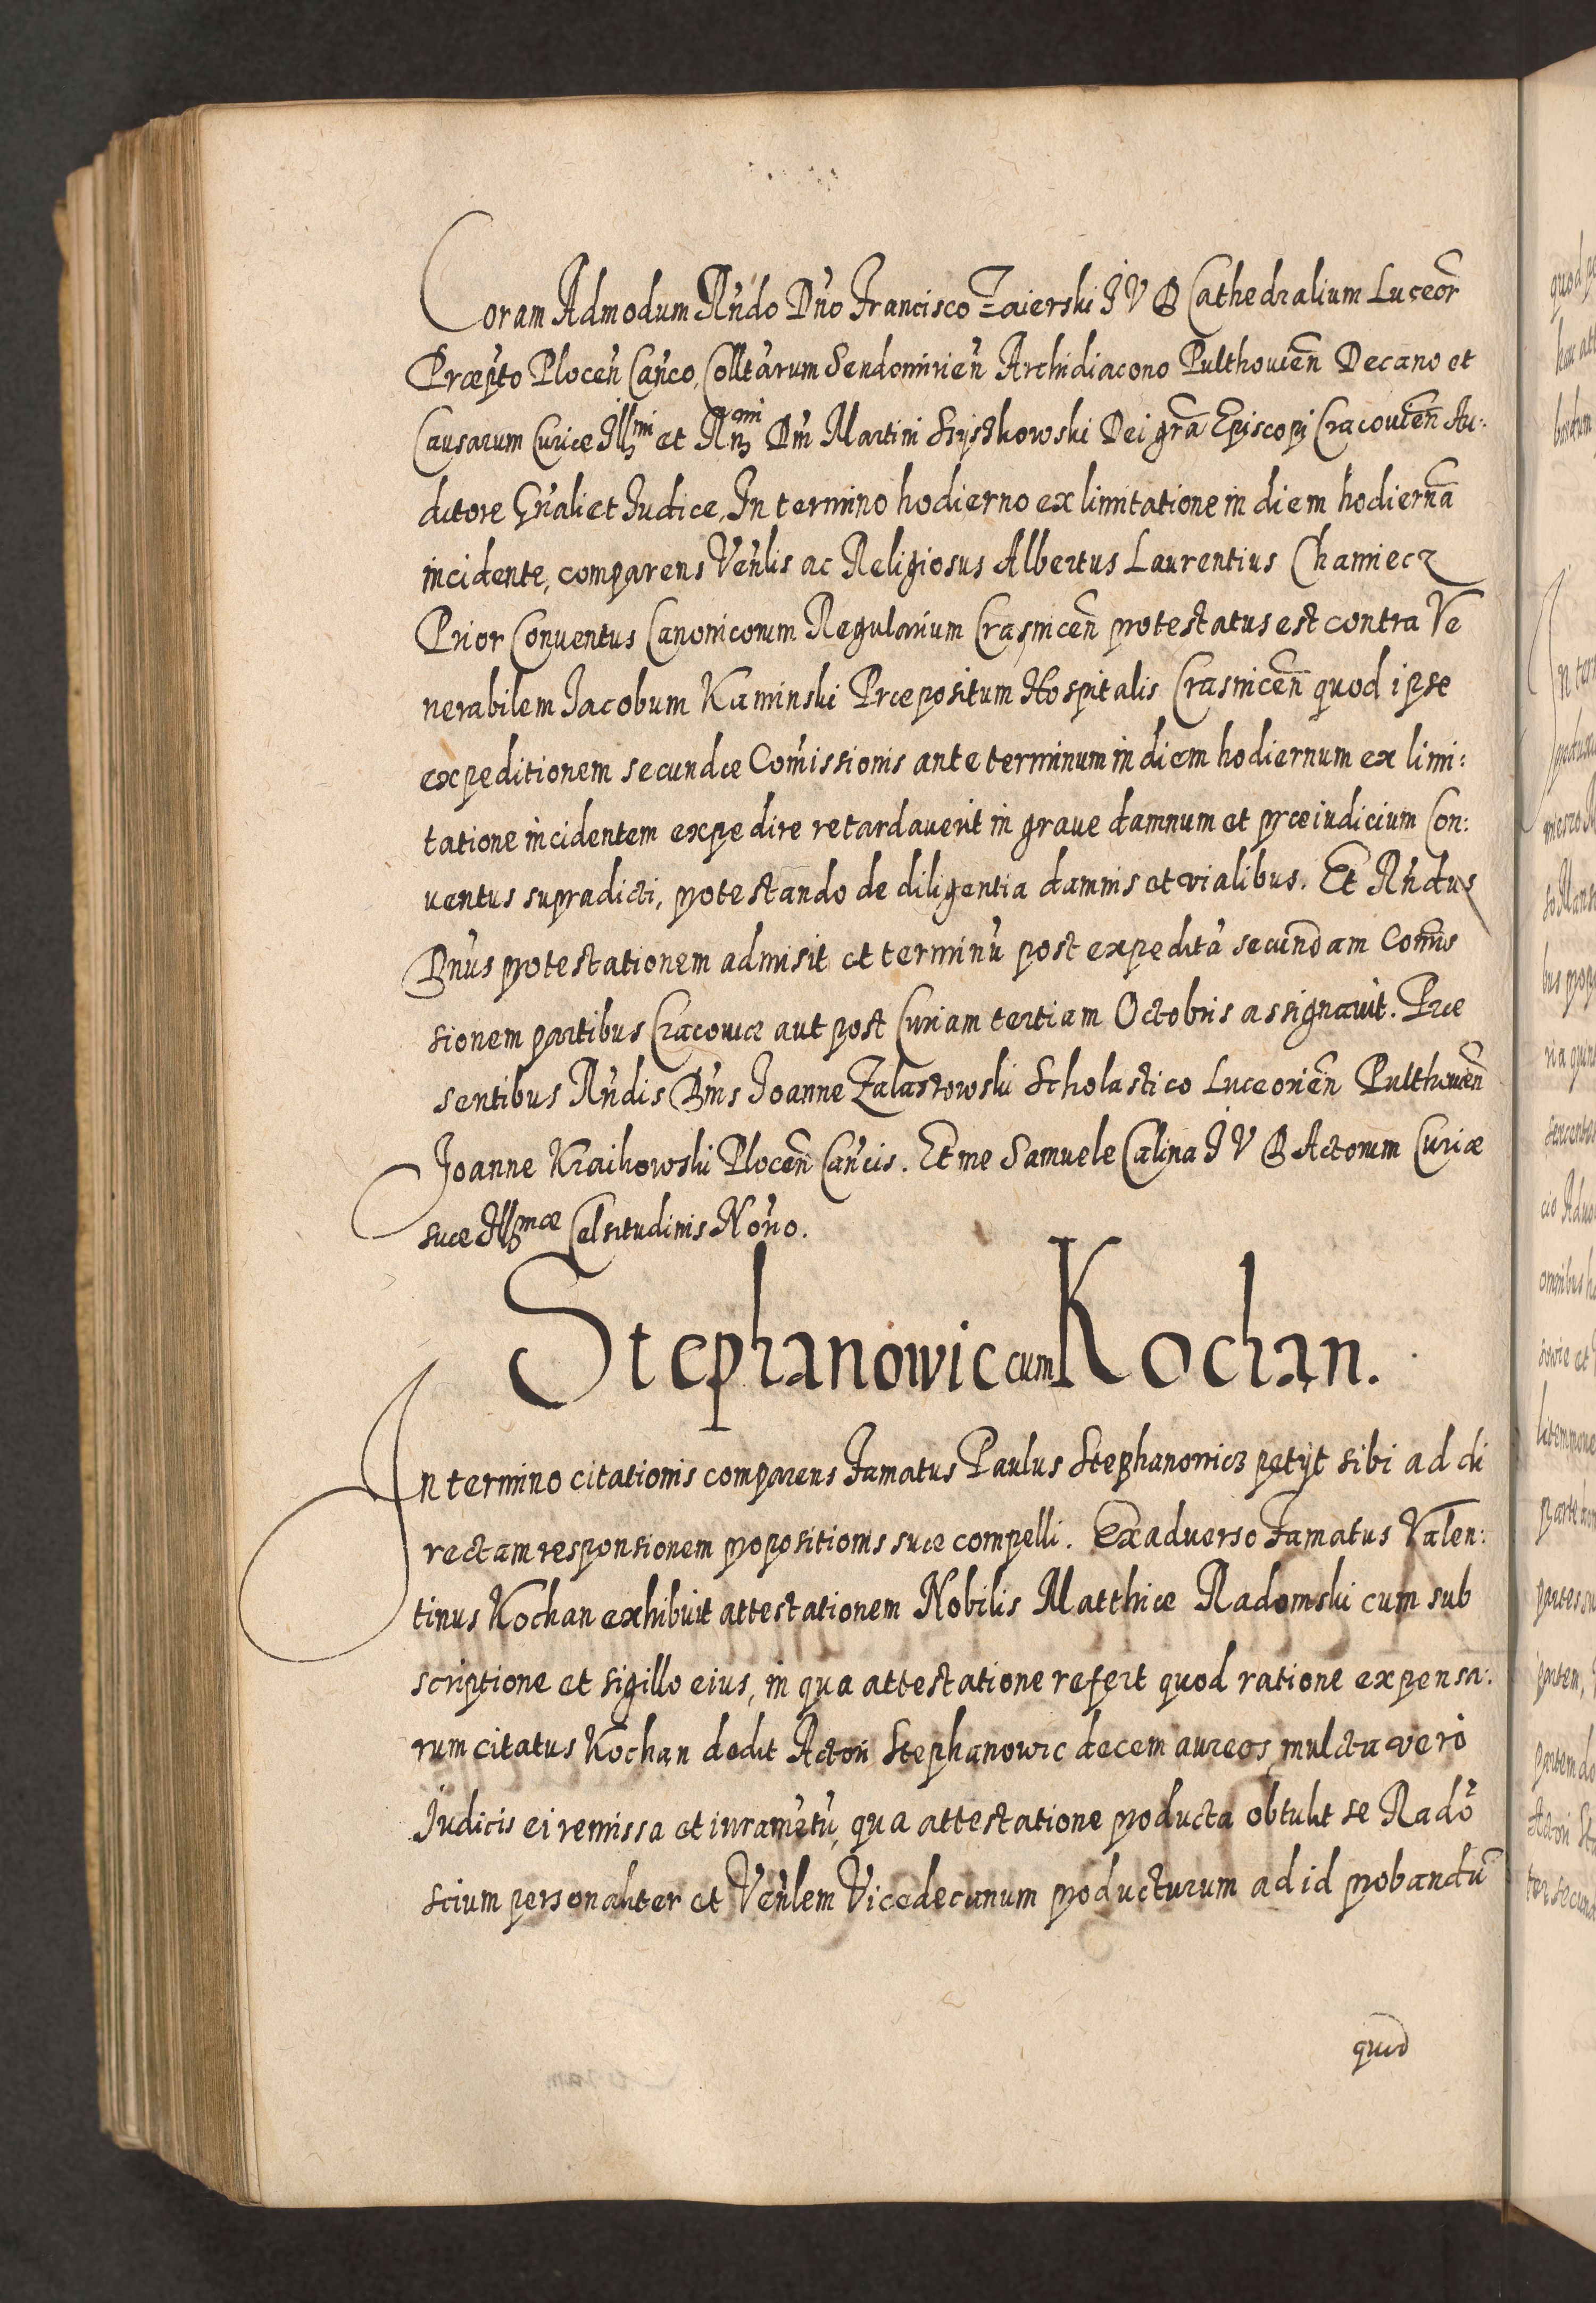 Coram Admodum Rńdo Dńo Francisco Zaierski I V D Cathedralium Luceor̃
Præpto Plocen̉ Cańco, Colltarum Sendomirien̉ Archidiacono Pulthouien̄ Decano et
Causarum Curiæ Illmi et Rmi Dni Martini Szyszkowski Dei gr̃a Episcopi Cracouien̄ Au-
ditore Gńali et Iudice, In termino hodierno ex limitatione in diem hodiernā
incidente, comparens Veńlis ac Religiosus Albertus Laurentius Chamiecz
Prior Conuentus Canonicorum Regularium Crasnicen̄ protestatus est contra Ve
nerabilem Iacobum Kaminski Præpositum Hospitalis Crasnicen̄ quod ipse
expeditionem secundæ Comissionis ante terminum in diem hodiernum ex limi:
tatione incidentem expedire retardauerit in graue damnum et præiudicium Con:
uentus supradicti, protestando de diligentia damnis et vialibus. Et Rńdus
Dńus protestationem admisit et terminū post expeditā secundam Comis
sionem partibus Cracouiæ aut post Curiam tertiam Octobris assignauit. Præ
sentibus Rńdis Dńis Ioanne Zalaszowski Scholastico Luceorien̄ Pulthouien̄
Joanne Kraikowski Plocen̄ Cańcis. Et me Samuele Calina I V D Actorum Curiæ
suæ Illmæ Celsitudinis Notrio.
Stephanowic cum Kochan.
In termino citationis comparens Famatus Paulus Stephanowicz petijt sibi ad di
rectam responsionem propositionis suæ compelli. Ex aduerso Famatus Valen:
tinus Kochan exhibuit attestationem Nobilis Matthiæ Radomski cum sub
scriptione et sigillo eius, in qua attestatione refert quod ratione expensa:
rum citatus Kochan dedit Actori Stephanowic decem aureos, mulcta vero
Iudicis ei remissa et iuramētū, qua attestatione producta obtulit se Radō
scium personaliter et Veńlem Vicedecanum producturum ad id probandū
quod